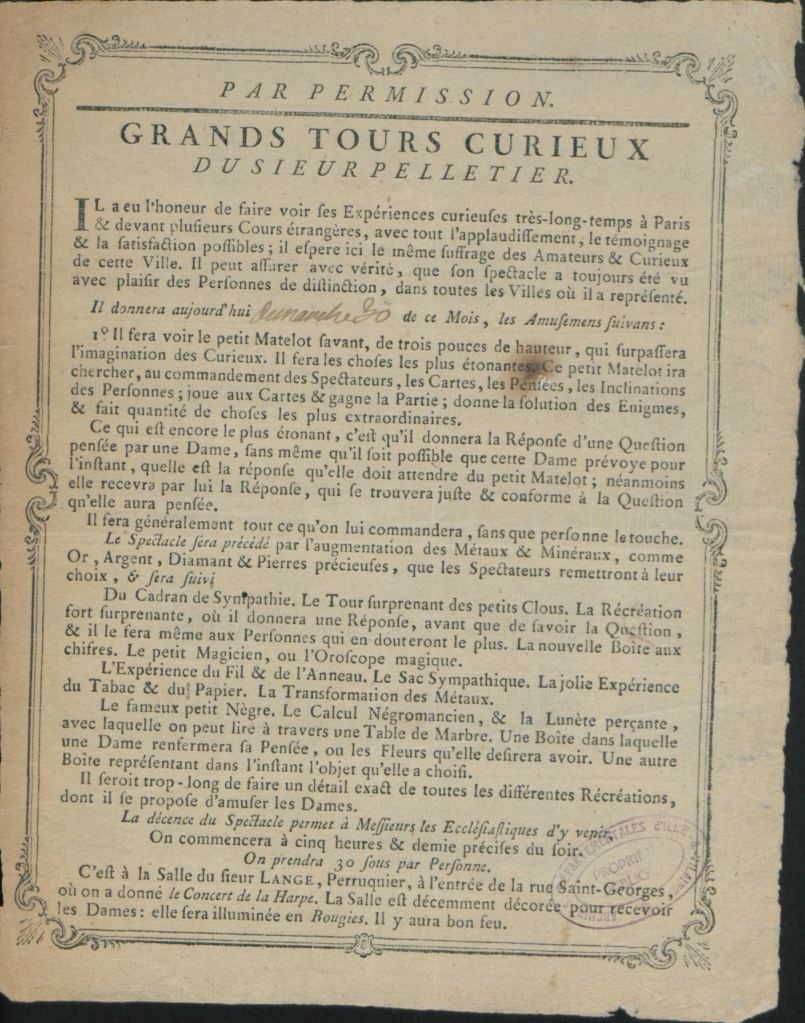 PAR PERMISSION.
GRANDS TOURS CURIEUX
DU SIEUR PELLETIER.
IL a eu l'honneur de faire voir ſes Expériences curieuſes très-long-temps à Paris
& devant pluſieurs Cours étrangères, avec tout l'applaudiſſement, le témoignage
& la ſatisfaction poſſibles; il eſpere ici le même ſuffrage des Amateurs & Curieux
de cette Ville. Il peut aſſurer avec vérité, que ſon ſpectacle a toujours été vu
avec plaiſir des Perſonnes de diſtinction, dans toutes les Villes où il a repréſenté.
Il donnera aujourd'hui dimanche 30 de ce Mois, les Amuſemens ſuivans:
1º. Il fera voir le petit Matelot ſavant, de trois pouces de hauteur, qui ſurpaſſera
l'imagination des Curieux. Il fera les choſes les plus étonantes. Ce petit Matelot ira
chercher, au commandement des Spectateurs, les Cartes, les Penſées, les Inclinations
des Perſonnes; joue aux Cartes & gagne la Partie; donne la ſolution des Enigmes,
& fait quantité de choſes les plus extraordinaires.
Ce qui eſt encore le plus étonant, c'eſt qu'il donnera la Réponſe d'une Queſtion
penſée par une Dame, ſans même qu'il ſoit poſſible que cette Dame prévoye pour
l'inſtant, quelle eſt la réponſe qu'elle doit attendre du petit Matelot; néanmoins
elle recevra par lui la Réponſe, qui ſe trouvera juſte & conforme à la Queſtion
qn'elle aura penſée.
Il fera généralement tout ce qu'on lui commandera, ſans que perſonne le touche.
Le Spectacle ſera précédé par l'augmentation des Métaux & Minéraux, comme
Or, Argent, Diamant & Pierres précieuſes, que les Spectateurs remettront à leur
choix, & ſera ſuivi
Du Cadran de Sympathie. Le Tour ſurprenant des petits Clous. La Récréation
fort ſurprenante, où il donnera une Réponſe, avant que de ſavoir la Queſtion,
& il le fera même aux Perſonnes qui en douteront le plus. La nouvelle Boîte aux
chifres. Le petit Magicien, ou l'Oroſcope magique.
L'Expérience du Fil & de l'Anneau. Le Sac Sympathique. La jolie Expérience
du Tabac & du Papier. La Transformation des Métaux.
Le fameux petit Nègre. Le Calcul Négromancien, & la Lunète perçante,
avec laquelle on peut lire à travers une Table de Marbre. Une Boîte dans laquelle
une Dame renfermera ſa Penſée, ou les Fleurs qu'elle deſirera avoir. Une autre
Boîte repréſentant dans l'inſtant l'objet qu'elle a choiſi.
Il ſeroit trop-long de faire un détail exact de toutes les différentes Récréations,
dont il ſe propoſe d'amuſer les Dames.
La décence du Spectacle permet à Meſſieurs les Eccléſiaſtiques d'y venir.
On commencera à cinq heures & demie préciſes du ſoir.
On prendra 30 ſous par Perſonne.
C'eſt à la Salle du ſieur LANGE, Perruquier, à l'entrée de la rue Saint-Georges,
où on a donné le Concert de la Harpe. La Salle eſt décemment décorée pour recevoir
les Dames: elle ſera illuminée en Bougies. Il y aura bon feu.